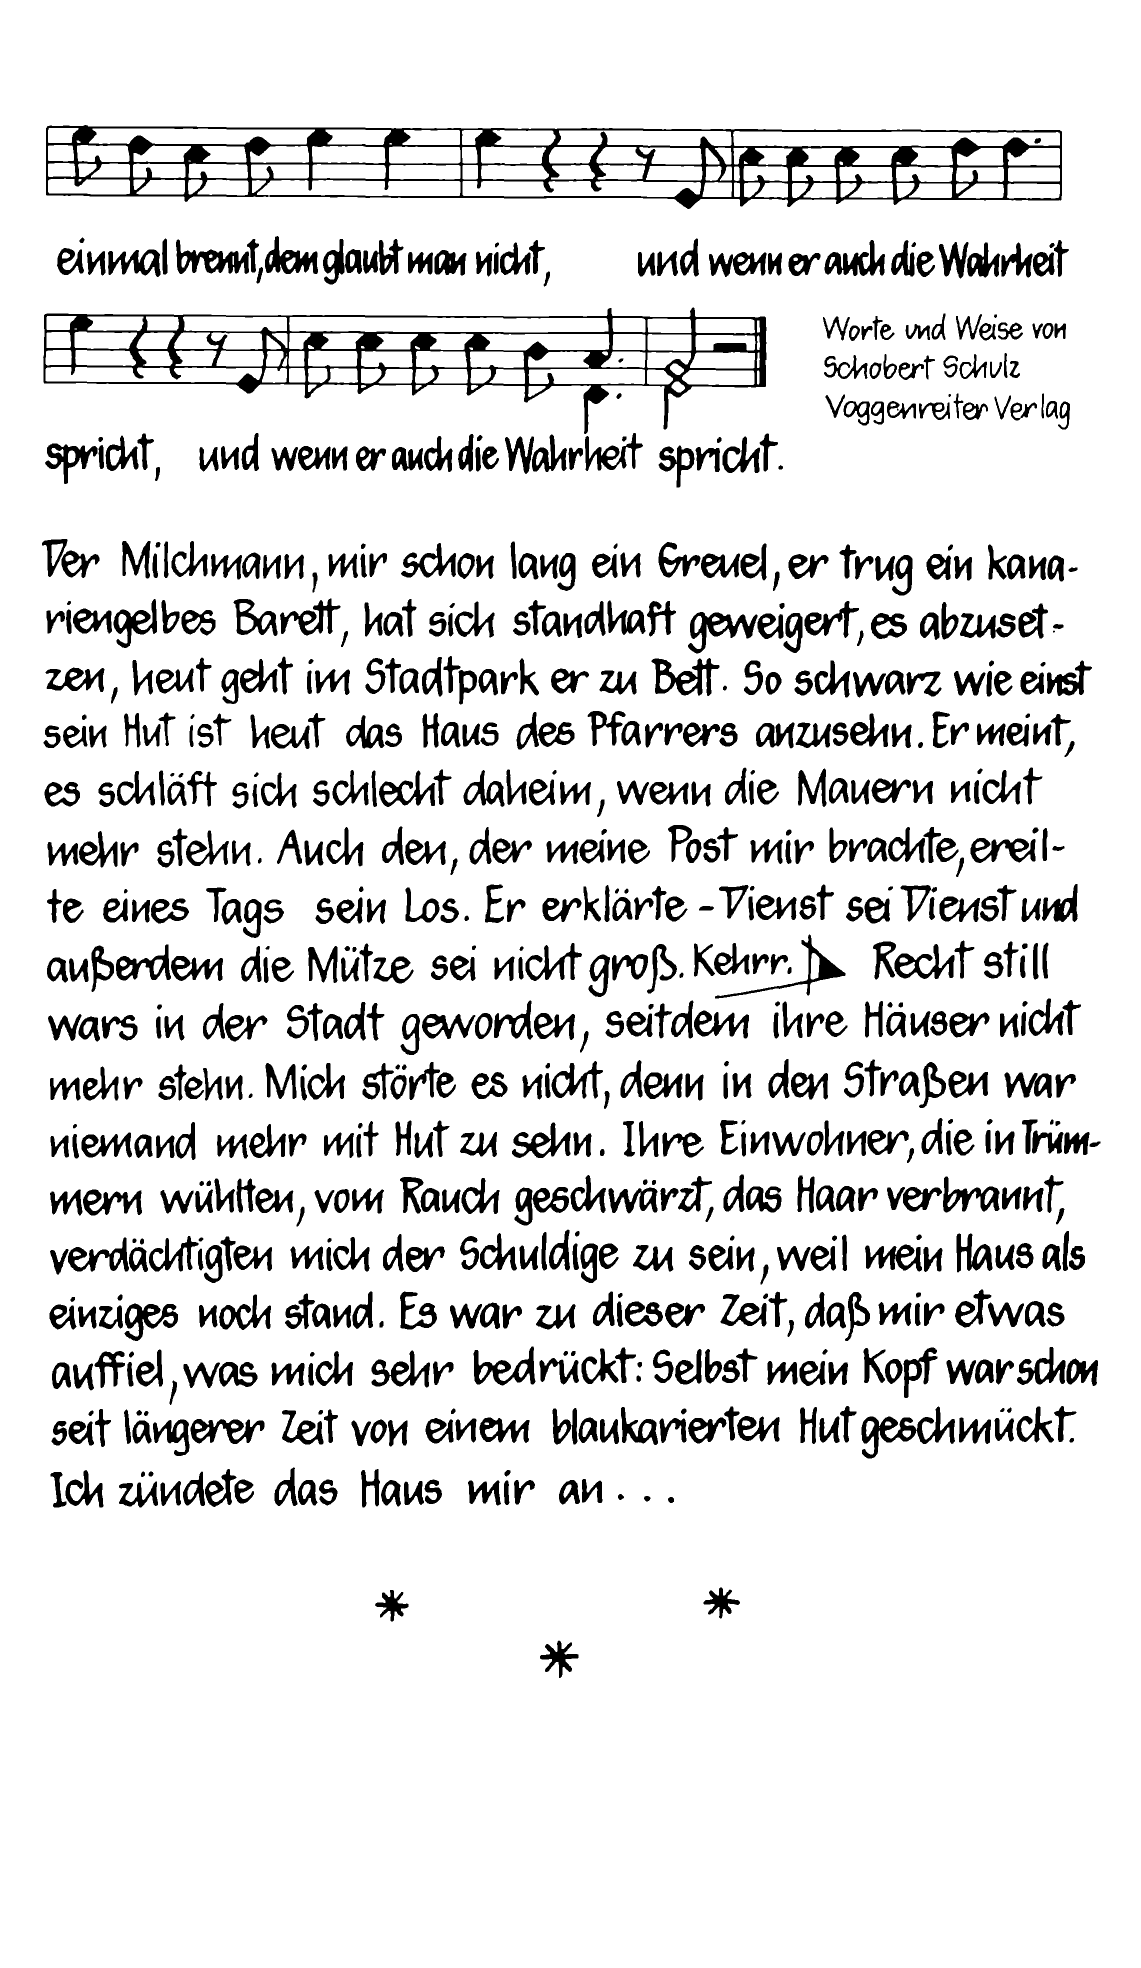 einmal brennt, dem glaubt man nicht, und wenn er auch die Wahrheit
Worte und Weise von
Schobert Schulz
Voggenreiter Verlag
spricht, und wenn er auch die Wahrheit spricht.
Der Milchmann, mir schon lang ein Greuel, er trug ein kana-
riengelbes Barett, hat sich standhaft geweigert, es abzuset-
zen, heut geht im Stadtpark er zu Bett. So schwarz wie einst
sein Hut ist heut das Haus des Pfarrers anzusehn. Er meint,
es schläft sich schlecht daheim, wenn die Mauern nicht
mehr stehn. Auch den, der meine Post mir brachte, ereil-
te eines Tags sein Los. Er erklärte - Dienst sei Dienst und
außerdem die Mütze sei nicht groß. Kehrr. Recht still
wars in der Stadt geworden, seitdem ihre Häuser nicht
mehr stehn. Mich störte es nicht, denn in den Straßen war
niemand mehr mit Hut zu sehn. Ihre Einwohner, die in Trüm-
mern wühlten, vom Rauch geschwärzt, das Haar verbrannt,
verdächtigten mich der Schuldige zu sein, weil mein Haus als
einziges noch stand. Es war zu dieser Zeit, daß mir etwas
auffiel, was mich sehr bedrückt: Selbst mein Kopf war schon
seit längerer Zeit von einem blaukarierten Hut geschmückt.
Ich zündete das Haus mir an . . .